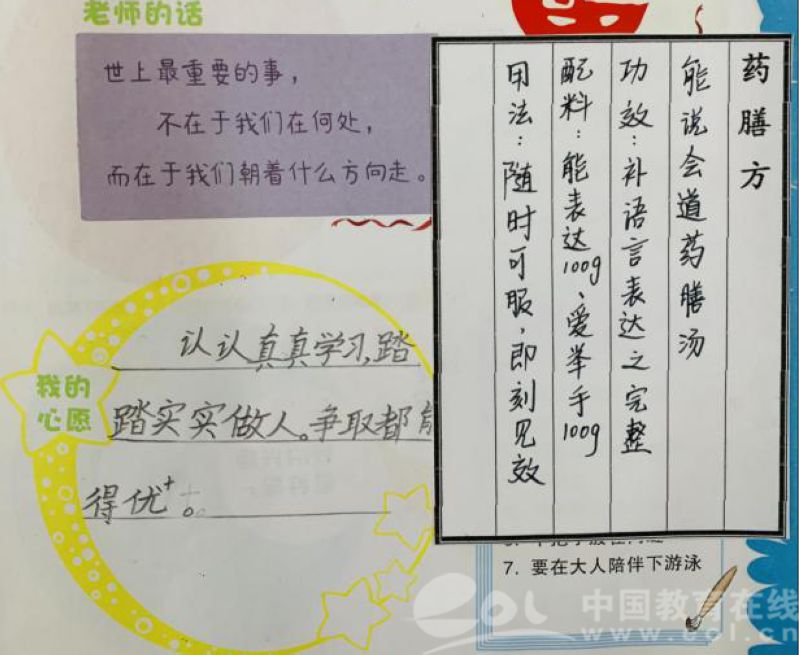 老师的话
世上最重要的事，
不在于我们在何处，
而在于我们朝着什么方向走。
我的
心愿
认认真真学习,踏
踏实实做人。争取都能
得优⁺。
药膳方
能说会道药膳汤
功效：补语言表达之完整
配料：能表达100g、爱举手100g
用法：随时可服，即刻见效
7. 要在大人陪伴下游泳
eol 中国教育在线
www.eol.cn